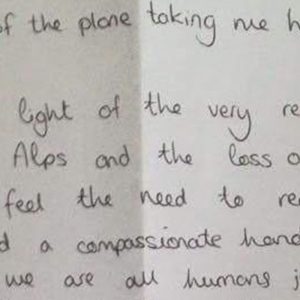 of the plane taking me h
light of the very re
Alps and the loss o
feel the need to re
d a compassionate hand
we are all humans j